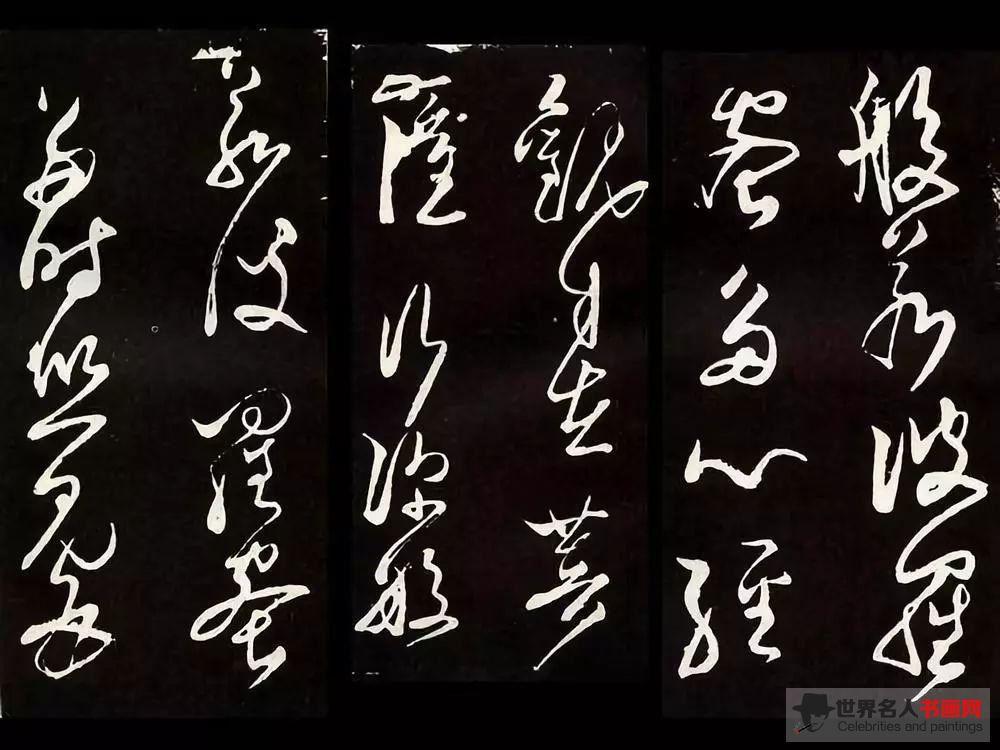 般若波羅
蜜多心經
觀自在菩
薩行深般
若波羅蜜
多時照見五
世界名人书画网
Celebrities and paintings